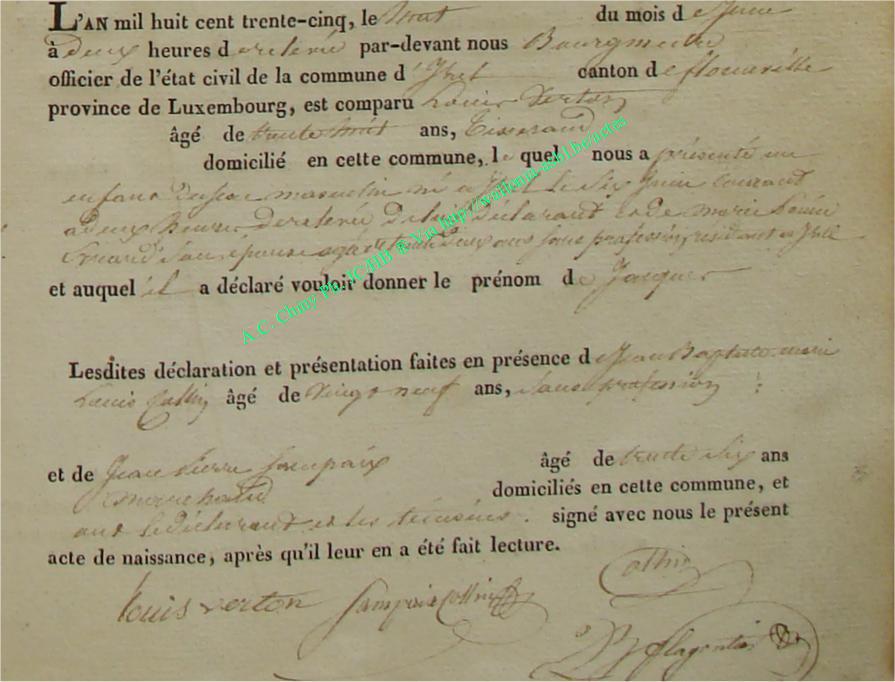 L'AN mil huit cent trente-cinq, le huit du mois de Juin
à deux heures de relevée par-devant nous Bourgmestre
officier de l'état civil de la commune d'Izel canton de florenville
province de Luxembourg, est comparu Louis Verton
âgé de trente huit ans, Tisserand
domicilié en cette commune, lequel nous a présenté un
enfant du sexe masculin né à Izel le six Juin courant
à deux heures de relevée de lui déclarant et de marie Louise
son épouse agée de trente deux ans sans profession, résidant à Izel
et auquel il a déclaré vouloir donner le prénom de Jacques
Lesdites déclaration et présentation faites en présence de Jean Baptiste marie
Louis Collin âgé de vingt neuf ans, sans profession
et de Jean Pierre âgé de trente six ans
marchand domiciliés en cette commune, et
ont le déclarant et les témoins signé avec nous le présent
acte de naissance, après qu'il leur en a été fait lecture.
louis verton Collin
A.C. Chiny Ph. ICHB ® Via http://wallonia-asbl.be/actes